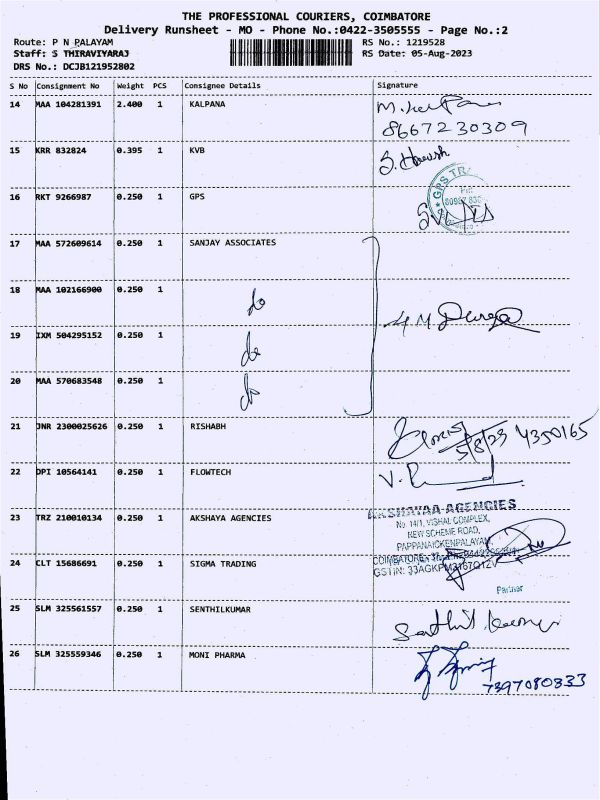 THE PROFESSIONAL COURIERS, COIMBATORE
Delivery Runsheet - MO - Phone No.:0422-3505555 - Page No.:2
Route: P N PALAYAM RS No.: 1219528
Staff: S THIRAVIYARAJ RS Date: 05-Aug-2023
DRS No.: DCJB121952802
S No Consignment No Weight PCS Consignee Details Signature
14 MAA 104281391 2.400 1 KALPANA
8667230309
15 KRR 832824 0.395 1 KVB S. Harish
16 RKT 9266987 0.250 1 GPS GPS TRA
17 MAA 572609614 0.250 1 SANJAY ASSOCIATES
18 MAA 102166900 0.250 1 do
19 IXM 504295152 0.250 1 do
20 MAA 570683548 0.250 1 do
21 JNR 2300025626 0.250 1 RISHABH 5/8/23 4350165
22 DPI 10564141 0.250 1 FLOWTECH
23 TRZ 210010134 0.250 1 AKSHAYA AGENCIES AKSHAYAA AGENCIES
No. 14/1, VISHAL COMPLEX,
NEW SCHEME ROAD,
PAPPANAICKENPALAYAM,
24 CLT 15686691 0.250 1 SIGMA TRADING COIMBATORE - 37
GSTIN: 33AGKPM3167Q1ZV
Partner
25 SLM 325561557 0.250 1 SENTHILKUMAR Senthil Kumar
26 SLM 325559346 0.250 1 MONI PHARMA
7397080333